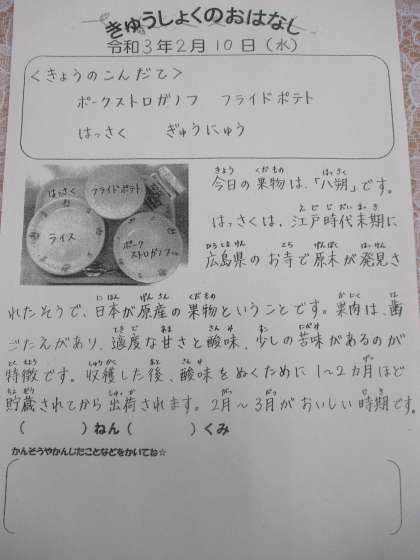 きゅうしょくのおはなし
令和3年2月10日(水)
<きょうのこんだて>
ポークストロガノフ フライドポテト
はっさく ぎゅうにゅう
はっさく
フライドポテト
ライス
ポーク
ストロガノフ
今日の果物は、「八朔」です。
はっさくは、江戸時代末期に
広島県のお寺で原木が発見さ
れたそうで、日本が原産の果物ということです。果肉は、歯
ごたえがあり、適度な甘さと酸味、少しの苦味があるのが
特徴です。収穫した後、酸味をぬくために1~2カ月ほど
貯蔵されてから出荷されます。2月~3月がおいしい時期です。
( )ねん( )くみ
かんそうやかんじたことなどをかいてね☆